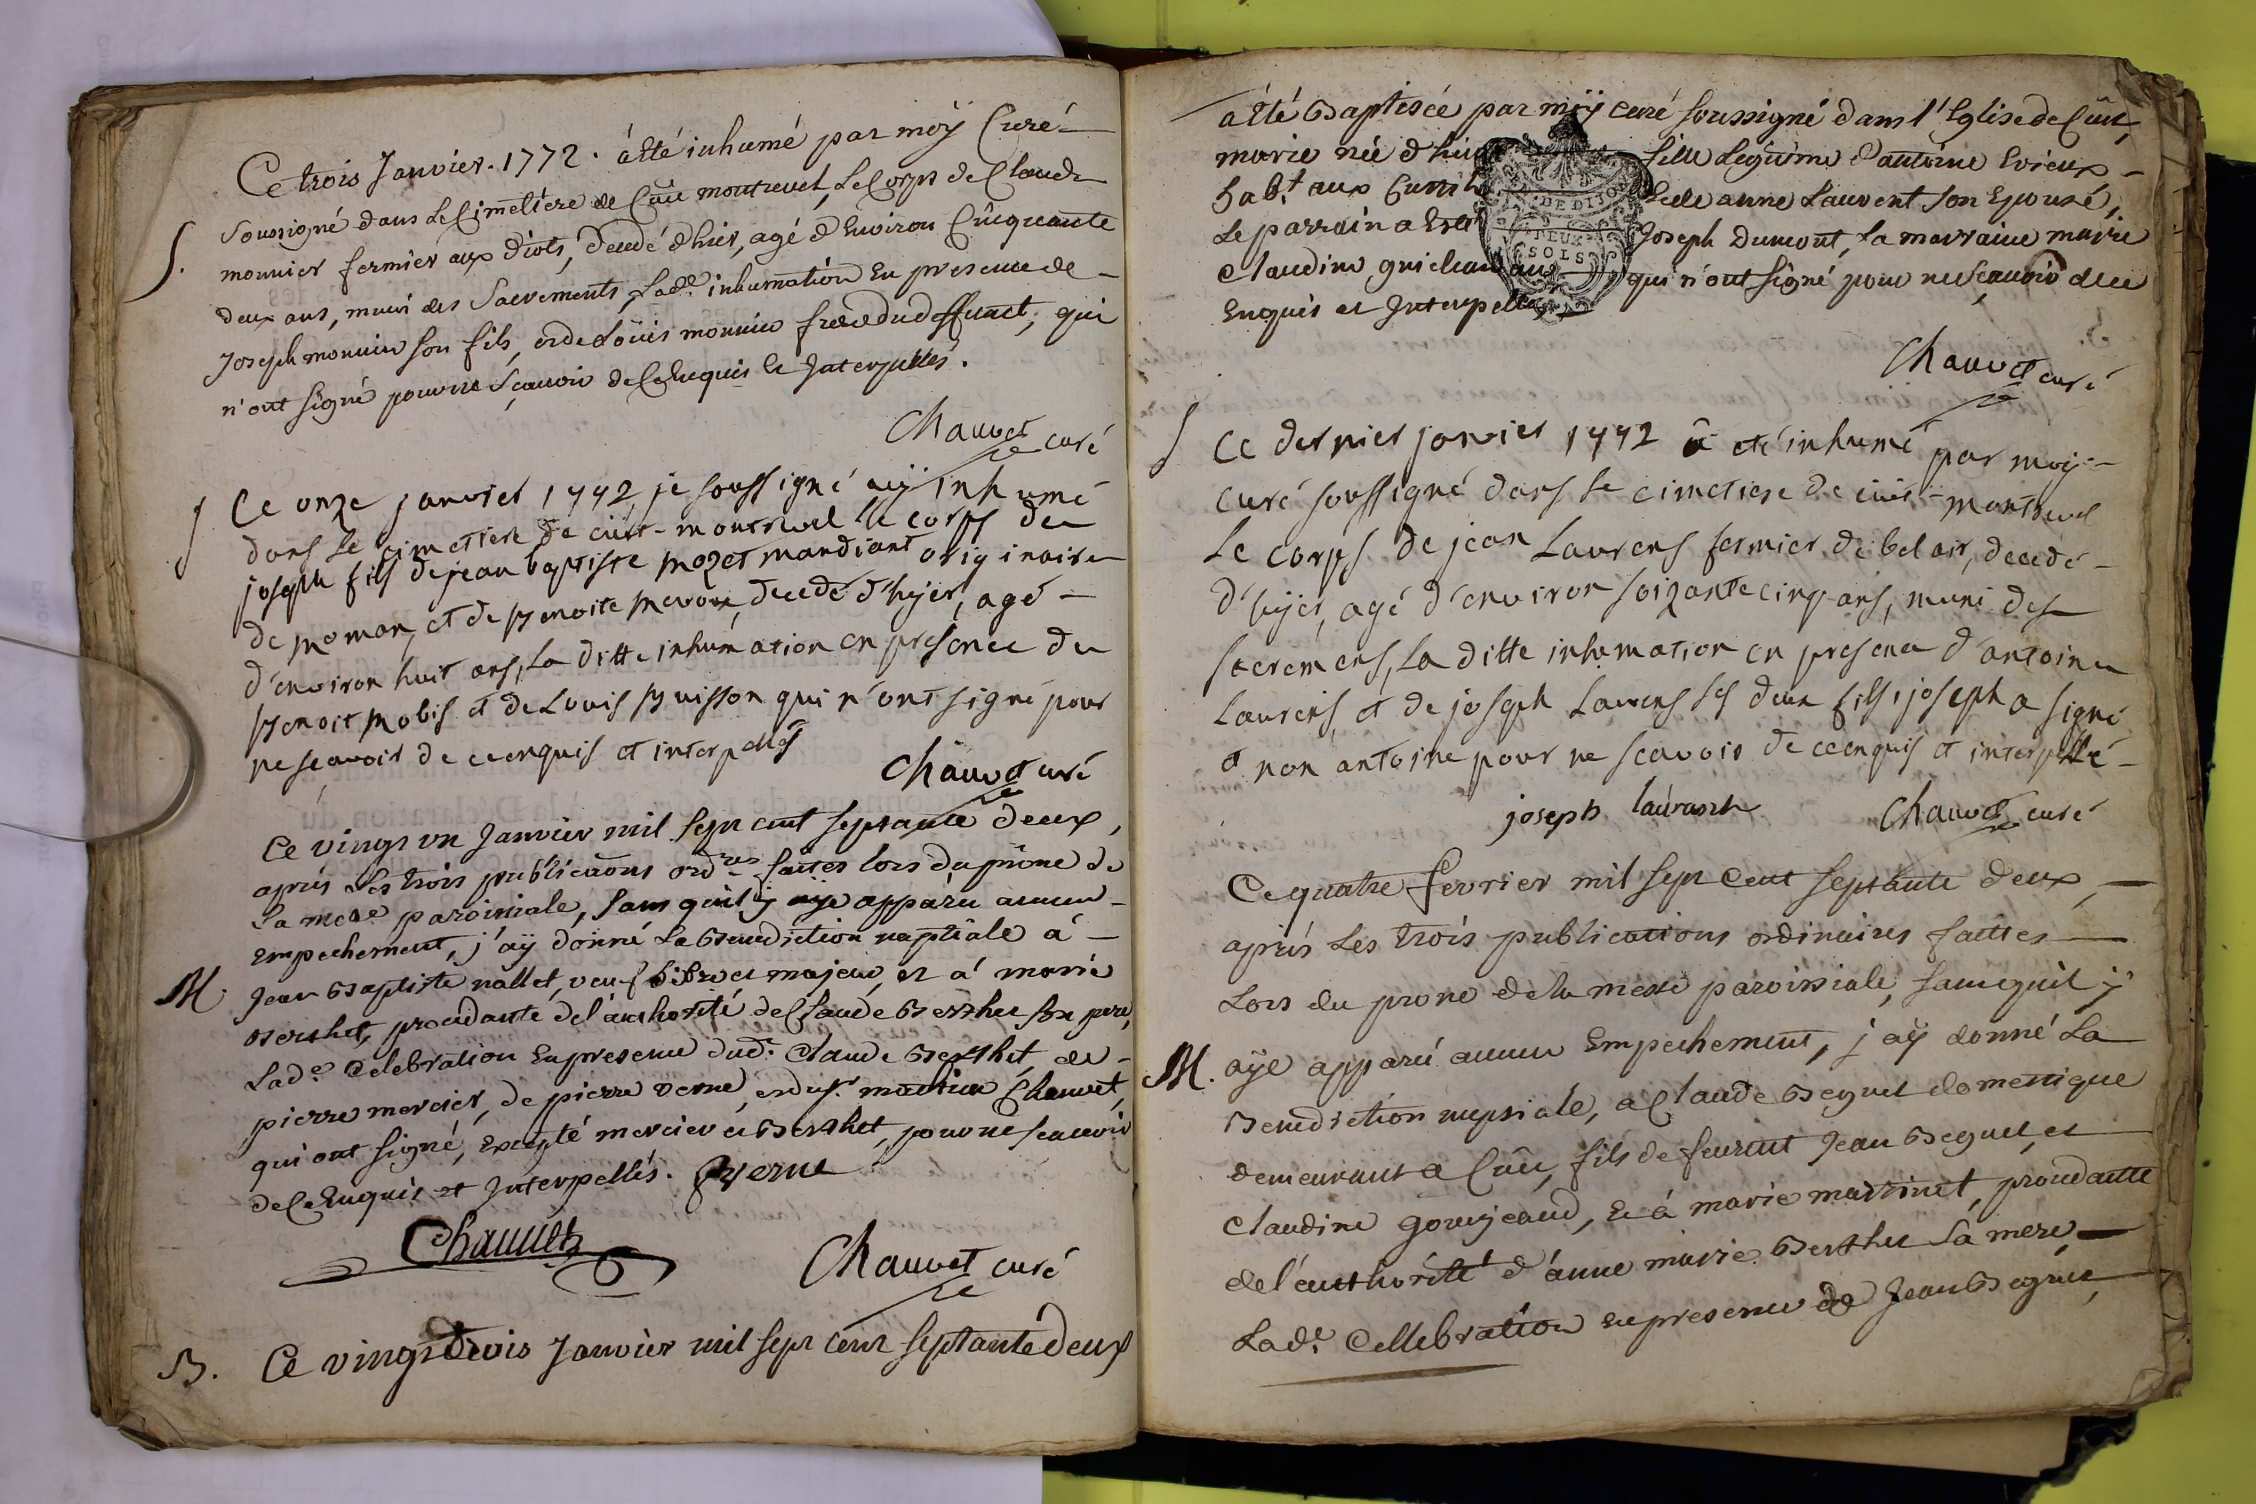 Ce trois Janvier. 1772. a Eté inhumé par moÿ Curé
S. soussigné dans Le Cimetiere de Cuit montrevel, Le Corps de Claude
monnier fermier aux diots, decedé d'hier, agé d'Environ Cinquante
deux ans, muni des Sacrements, lad.e inhumation En presence de
Joseph monnier son fils, et de Loüis monnier frere du deffunct, qui
n'ont signé pour ne sçavoir de Ce Enquis Et Interpellés.
Chauvet curé
S Ce onze janvier 1772, je soussigné aÿ inhumé
dans le cimetiere de cuit-montrevel le corps de
joseph fils de jean baptiste mozet mandiant originaire
de et de Benoite decedé d'hyer, agé
d'environ huit ans, la ditte inhumation en presence de
Benoit mobis et de Louis Buisson qui n'ont signé pour
ne sçavoir de ce enquis et interpellés
Chauvet curé
Ce vingt un Janvier mil sept cent septante deux,
aprés Les trois publications ord.res faites lors du prône de
La messe paroissiale, sans qu'il y aÿe apparu aucun
Empechement, j'aÿ donné La Benediction nuptiale á
M. Jean Baptiste nallet, veuf Libre et majeur, et á marie
Berthet, procedante de l'authorité de Claude Berthet son pere,
Lad.e Celebration En presence dud. Claude Berthet, de
pierre mercier, de pierre verne, et du s.r Chauvet,
qui ont signé, Excepté mercier et Berthet, pour ne scavoir
de Ce Enquis et Interpellés. verne
Chauvet
Chauvet curé
B. Ce vingt trois Janvier mil sept cent septante deux
a été Baptisée par moÿ curé soussigné dans l'Eglise de Cuit,
marie née d'hier fille Legitime d'antoine
hab.t aux anne Laurent son Epouse,
DE DIJON
Le parrain a Esté Joseph Dumont, La marraine marie
DEUX
SOLS
Claudine qui n'ont signé pour ne sçavoir de ce
Enquis et Interpellés
Chauvet curé
S Ce dernier janvier 1772 a eté inhumé par moy
curé soussigné dans le cimetiere de cuit-montrevel
Le corps de jean Laurens fermier de bel air, decedé
d'hyer, agé d'environ soixante cinq ans, muni des
sacremens, La ditte inhumation en presence d'antoine
Laurens, et de joseph Laurens ses deux fils, joseph a signé
et non antoine pour ne scavoir de ce enquis et interpellé
joseph Chauvet curé
Ce quatre fevrier mil sept Cent septante deux,
aprés Les trois publications ordinaires faittes
Lors du prone de la messe paroissiale, sans qu'il y
M. aÿe apparu aucun Empechement, j'aÿ donné La
Benediction nuptiale, a Claude Beguet domestique
demeurant a Cuit, fils de feu Jean Beguet, et
Claudine Goujeaud, Et á marie martinet, procedante
de l'authorité d'anne marie Berthet Sa mere,
Lad.e Cellebration En presence de Jean Beguet,